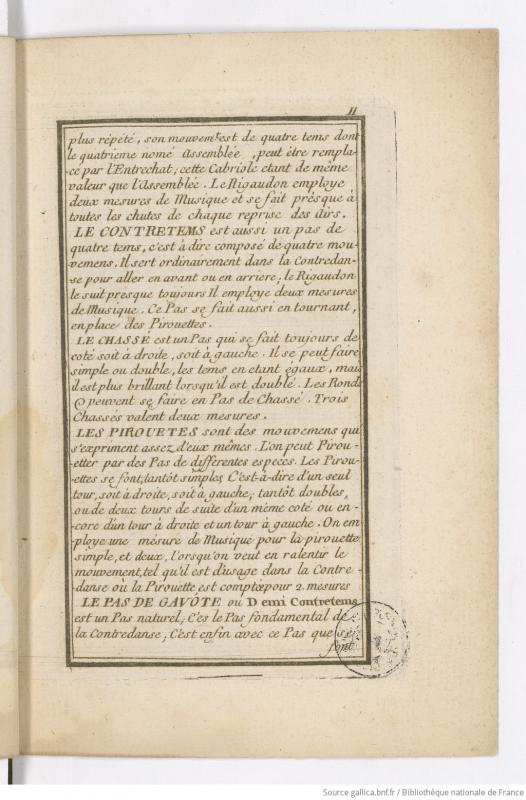 11
plus répété, son mouvemt. est de quatre tems dont
le quatrieme nomé assemblée, peut être rempla-
-ce par l'Entrechat; cette Cabriole etant de même
valeur que l'Assemblée. Le Rigaudon employe
deux mesures de Musique et se fait présque à
toutes les chutes de chaque reprise des Airs.
LE CONTRETEMS est aussi un pas de
quatre tems, c'est à dire composé de quatre mou-
vemens. Il sert ordinairement dans la Contredan-
-se pour aller en avant ou en arriere; le Rigaudon
le suit presque toujours Il employe deux mesures
de Musique. Ce Pas se fait aussi en tournant,
en place des Pirouettes.
LE CHASSE est un Pas qui se fait toujours de
coté soit à droite, soit à gauche. Il se peut faire
simple ou double, les tems en etant égaux, mais
il est plus brillant lorsqu'il est doublé. Les Ronds
peuvent se faire en Pas de Chassé. Trois
Chassés valent deux mesures.
LES PIROUETES sont des mouvemens qui
s'expriment assez d'eux mêmes. L'on peut Pirou-
-etter par des Pas de differentes especes. Les Pirou-
-ettes se font, tantôt simples, C'est-à-dire d'un seul
tour, soit à droite, soit à gauche; tantôt doubles,
ou de deux tours de suite d'un même coté ou en-
-core d'un tour à droite et un tour à gauche. On em
-ploye une mésure de Musique pour la pirouette
simple, et deux, l'orsqu'on veut en ralentir le
mouvement, tel qu'il est d'usage dans la Contre-
-danse où la Pirouette est comptée pour 2. mesures
LE PAS DE GAVÔTE ou Demi Contretems
est un Pas naturel; C'es le Pas fondamental de
la Contredanse; C'est enfin avec ce Pas que se
font
Source gallica.bnf.fr / Bibliothèque nationale de France